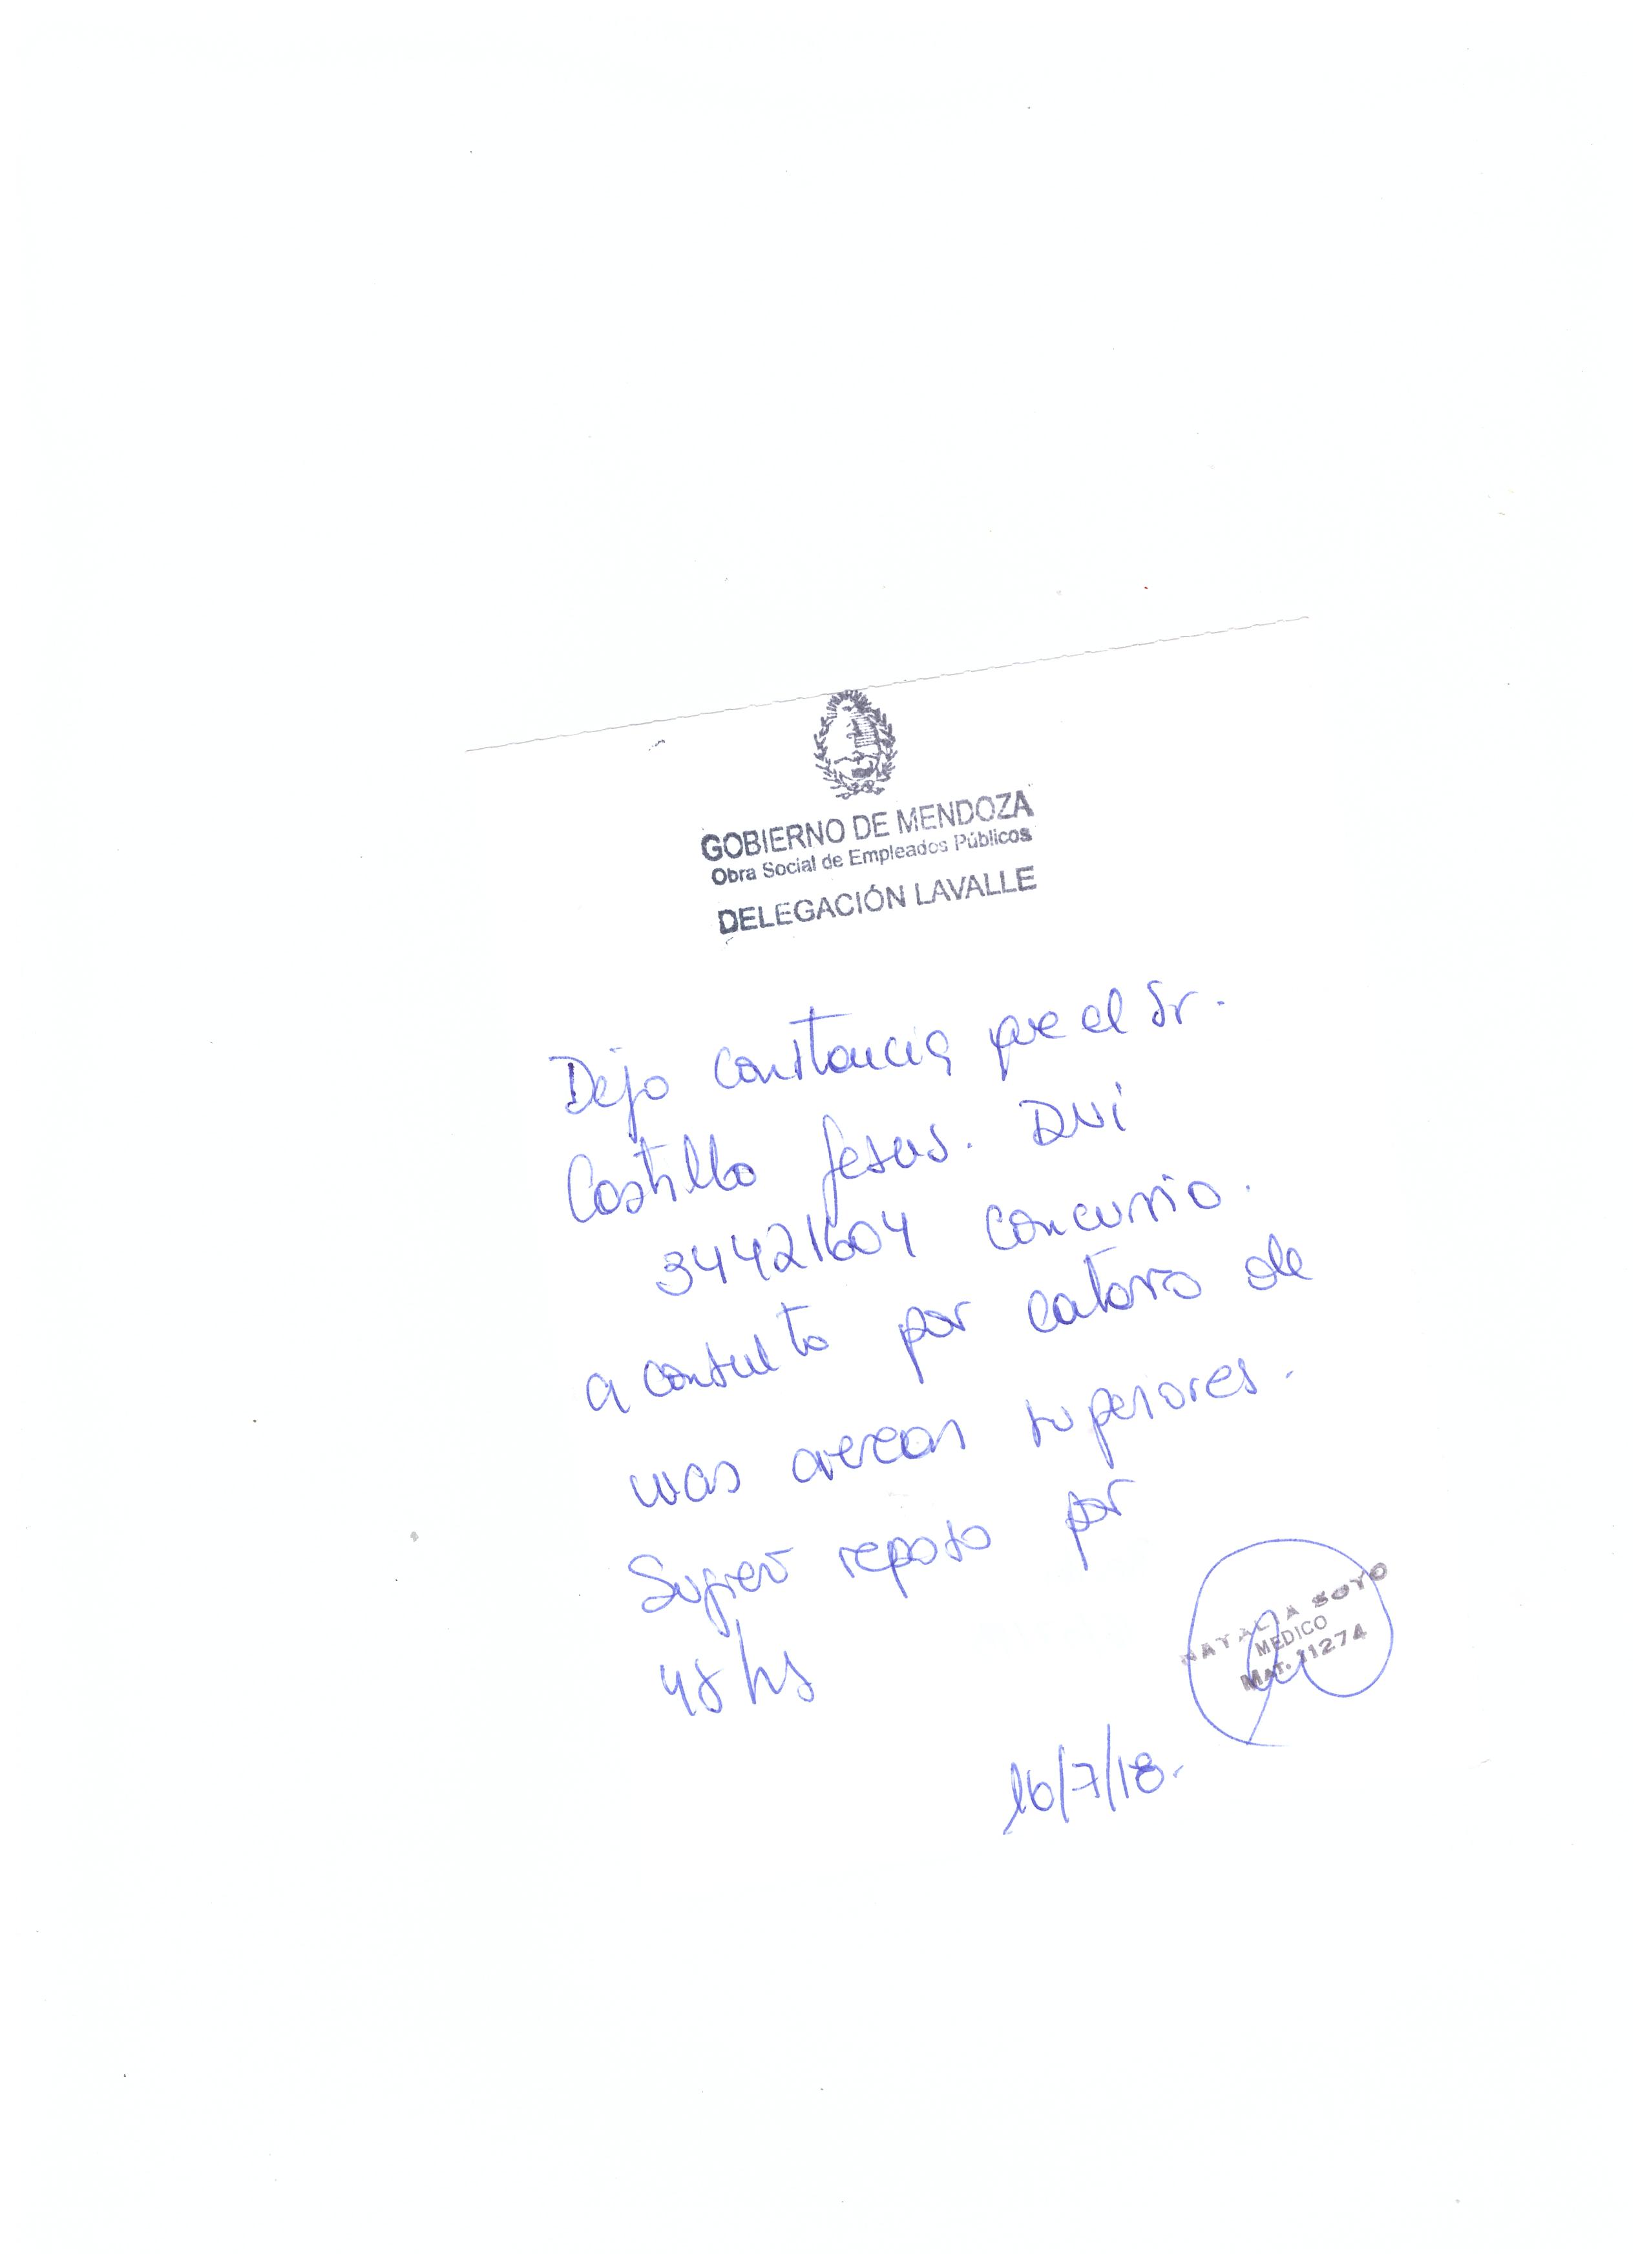 GOBIERNO DE MENDOZA
Obra Social de Empleados Públicos
DELEGACIÓN LAVALLE
Dejo constancia que el Sr.
Castillo Jesus. DNI
34421604 concurrio.
a consulta por catarro de
vias aereas superiores.
Sugiero reposo por
48 hs
NATALIA SOTO
MEDICO
MAT. 11274
16/7/18.